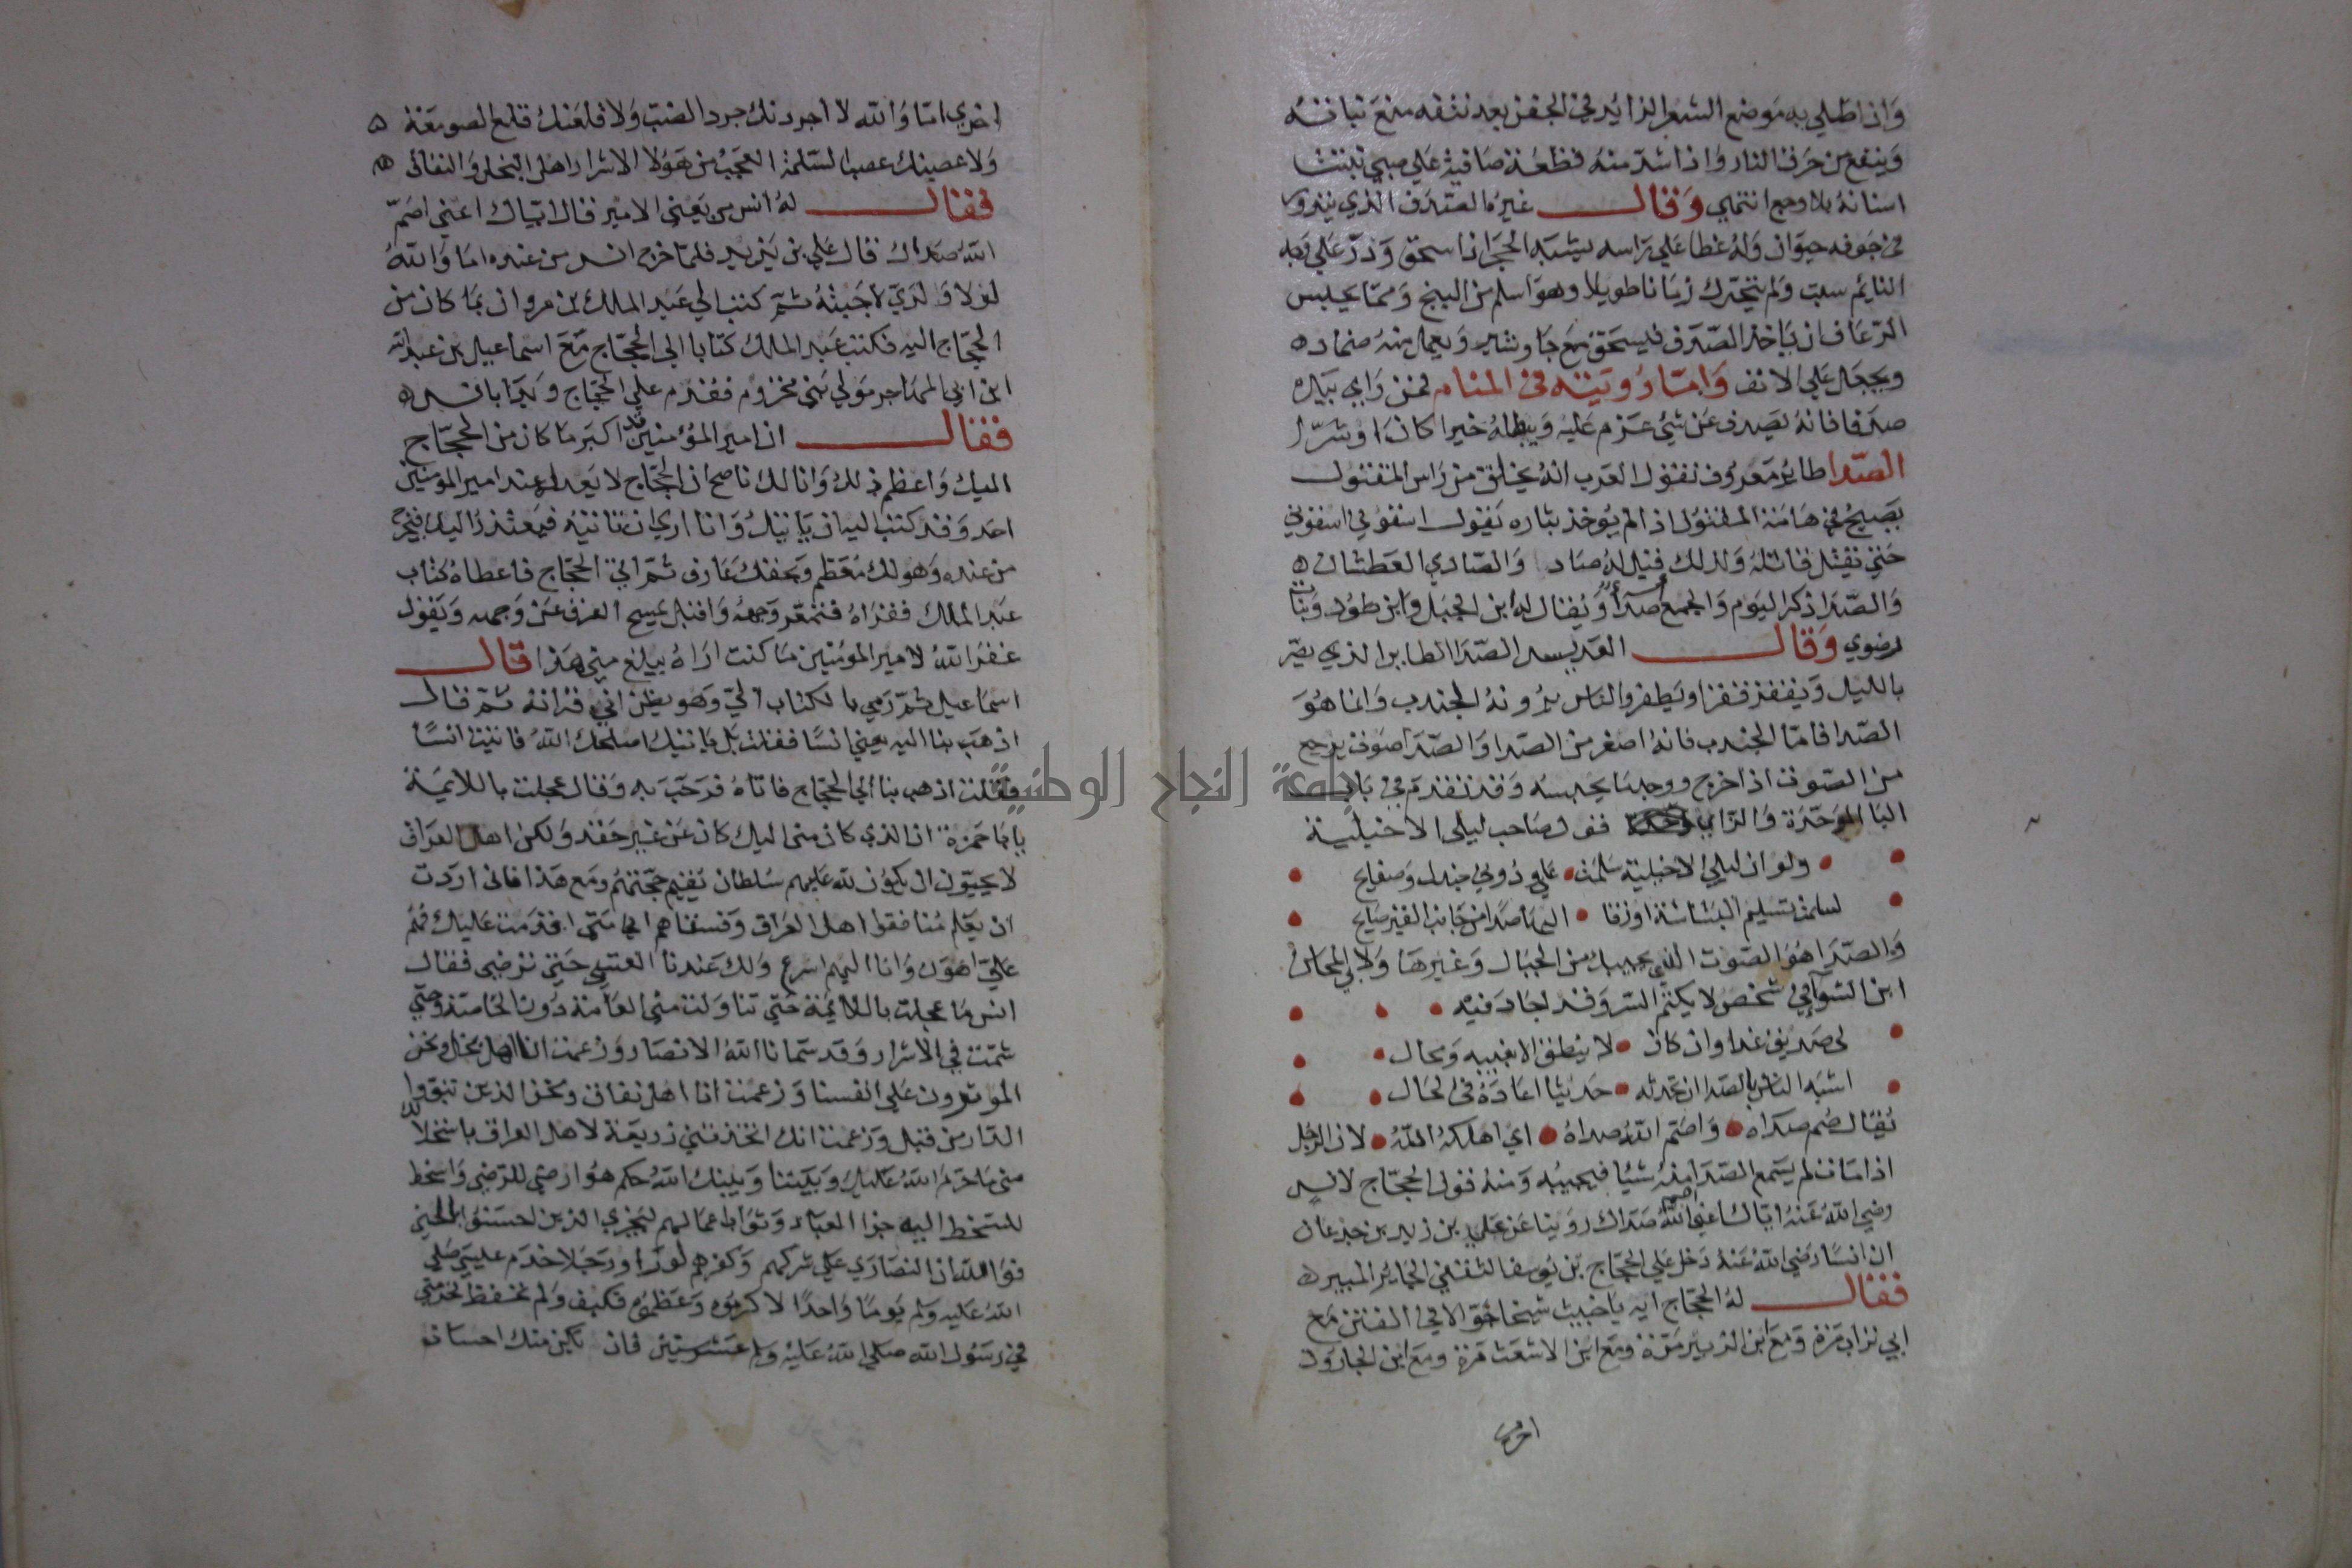 واذا طلي به موضع الشعر الزائد في الجفن بعد نتفه منع نباته
وينفع من حرق النار واذا شد منه قطعة صافية على صبي نبتت
اسنانه بلا وجع انتهى وقال غيره الصدف الذي
في جوفه حيوان وله غطا على راسه يشبه الحجر اذا سحق وذر على وجه
النايم سبت ولم يتحرك زمانا طويلا وهو اسلم من البنج ومما يحبس
الرعاف ان ياخذ الصدف فيسحق مع جاوشير ويعمل منه ضماده
ويجعل على الانف واما رويته في المنام فمن راى بيده
صدفا فانه يصدف عن شي عزم عليه ويبطله خيرا كان او شرا
الصدا طاير معروف تقول العرب انه يخلق من راس المقتول
يصيح في هامة المقتول اذا لم يوخذ بثاره يقول اسقوني اسقوني
حتى يقتل قاتله ولذلك قيل له صاد والصادي العطشان ه
والصدا ذكر اليوم والجمع اصدا ويقال له ابن الجبل وابن طود وبنات
رضوي وقال العدبس الصدا الطاير الذي يصر
بالليل ويقفز قفزا ويطفر والناس يرونه الجندب وانما هو
الصدا فاما الجندب فانه اصغر من الصدا والصدا صوت يرجع
من الصوت اذا خرج ووجد ما يحبسه وقد تقدم في باب
البا الموحدة والزاي قول صاحب ليلى الاخيلية
ولو ان ليلى الاخيلية سلمت • علي ودوني جندل وصفايح
لسلمت تسليم البشاشة او زقا • اليها صدا من جانب القبر صايح
والصدا هو الصوت الذي يجيبك من الجبال وغيرها ولابي المحاسن
ابن الشوا في شخص لا يكتم السر وقد اجاد فيه •
لي صديق غدا وان كان • لا ينطق الا بغيبه ومحال •
اشبه الناس بالصدا ان تحدثه • حديثا اعاده في الحال •
يقال صم صداه • واصم الله صداه • اي اهلكه الله • لان الرجل
اذا مات لم يسمع الصدا منه شيئا فيجيبه ومنه قول الحجاج لانس
رضي الله عنه اياك اعني اصم الله صداك روينا عن علي بن زيد بن جدعان
ان انسا رضي الله عنه دخل على الحجاج بن يوسف الثقفي الجاير المبير ه
فقال له الحجاج ايه يا خبيث شيخا جوالا في الفتن مع
ابي تراب مرة ومع ابن الزبير مرة ومع ابن الاشعث مرة ومع ابن الجارود
اخري
اخري اما والله لا اجردنك جرد الضب ولا قلعنك قلع الصومغة ه
ولا عصبنك عصب السلمة العجب من هولا الاشرار اهل البخل والنفاق ه
فقال له انس من يعني الامير قال اياك اعني اصم
الله صداك قال علي بن يزيد فلما خرج انس من عنده اما والله
لولا ولدي لاجبته ثم كتب الي عبد الملك بن مروان بما كان من
الحجاج اليه فكتب عبد الملك كتابا الي الحجاج مع اسماعيل بن عبد الله
ابن ابي المهاجر مولي بني مخزوم فقدم علي الحجاج وبدا بانس ه
فقال ان امير المؤمنين قد اكبر ما كان من الحجاج
اليك واعظم ذلك وانا لك ناصح ان الحجاج لا يعدله عند امير المومنين
احد وقد كتب اليه ان ياتيك وانا اري ان تاتيه فيعتذر اليك فيخرج
من عنده وهو لك معظم وبحقك عارف ثم اتي الحجاج فاعطاه كتاب
عبد الملك فقراه فتمعر وجهه واقبل يمسح العرق عن وجهه ويقول
غفر الله لامير المومنين ما كنت اراه يبلغ مني هذا قال
اسماعيل ثم رمي بالكتاب الي وهو يظن اني قراته ثم قال
اذهب بنا اليه يعني انسا فقلت بل ياتيك اصلحك الله فاتيت انسا
فقلت اذهب بنا الي الحجاج فاتاه فرحب به وقال عجلت باللايمة
يابا حمزة ان الذي كان مني اليك كان عن غير حقد ولكن اهل العراق
لا يحبون ان يكون لله عليهم سلطان يقيم حجتهم ومع هذا فاني اردت
ان يعلم منافقوا اهل العراق وفساقهم اني متى اقدمت عليك فهم
علي اهون وانا اليهم اسرع ولك عندنا العتبي حتي ترضى فقال
انس ما عجلت باللايمة حتي تناولت مني العامة دون الخاصة وحتي
شمت في الاشرار وقد سمانا الله الانصار وزعمت انا اهل بخل ونحن
الموثرون علي انفسنا وزعمت انا اهل نفاق ونحن الذين تبووا
الدار من قبل وزعمت انك اتخذتني ذريعة لاهل العراق باستحلالك
مني ما حرم الله عليك وبيننا وبينك الله حكم هو ارضي للرضى واسخط
للسخط اليه جزا العباد وثواب اعمالهم ليجزي الذين احسنوا بالحسني
فوالله ان النصاري علي شركهم وكفرهم لو راوا رجلا خدم عيسي صلي
الله عليه وسلم يوما واحدا لاكرموه وعظموه فكيف ولم تحفظ لي خدمتي
في رسول الله صلي الله عليه وسلم عشر سنين فان يكن منك احسان
جامعة النجاح الوطنية